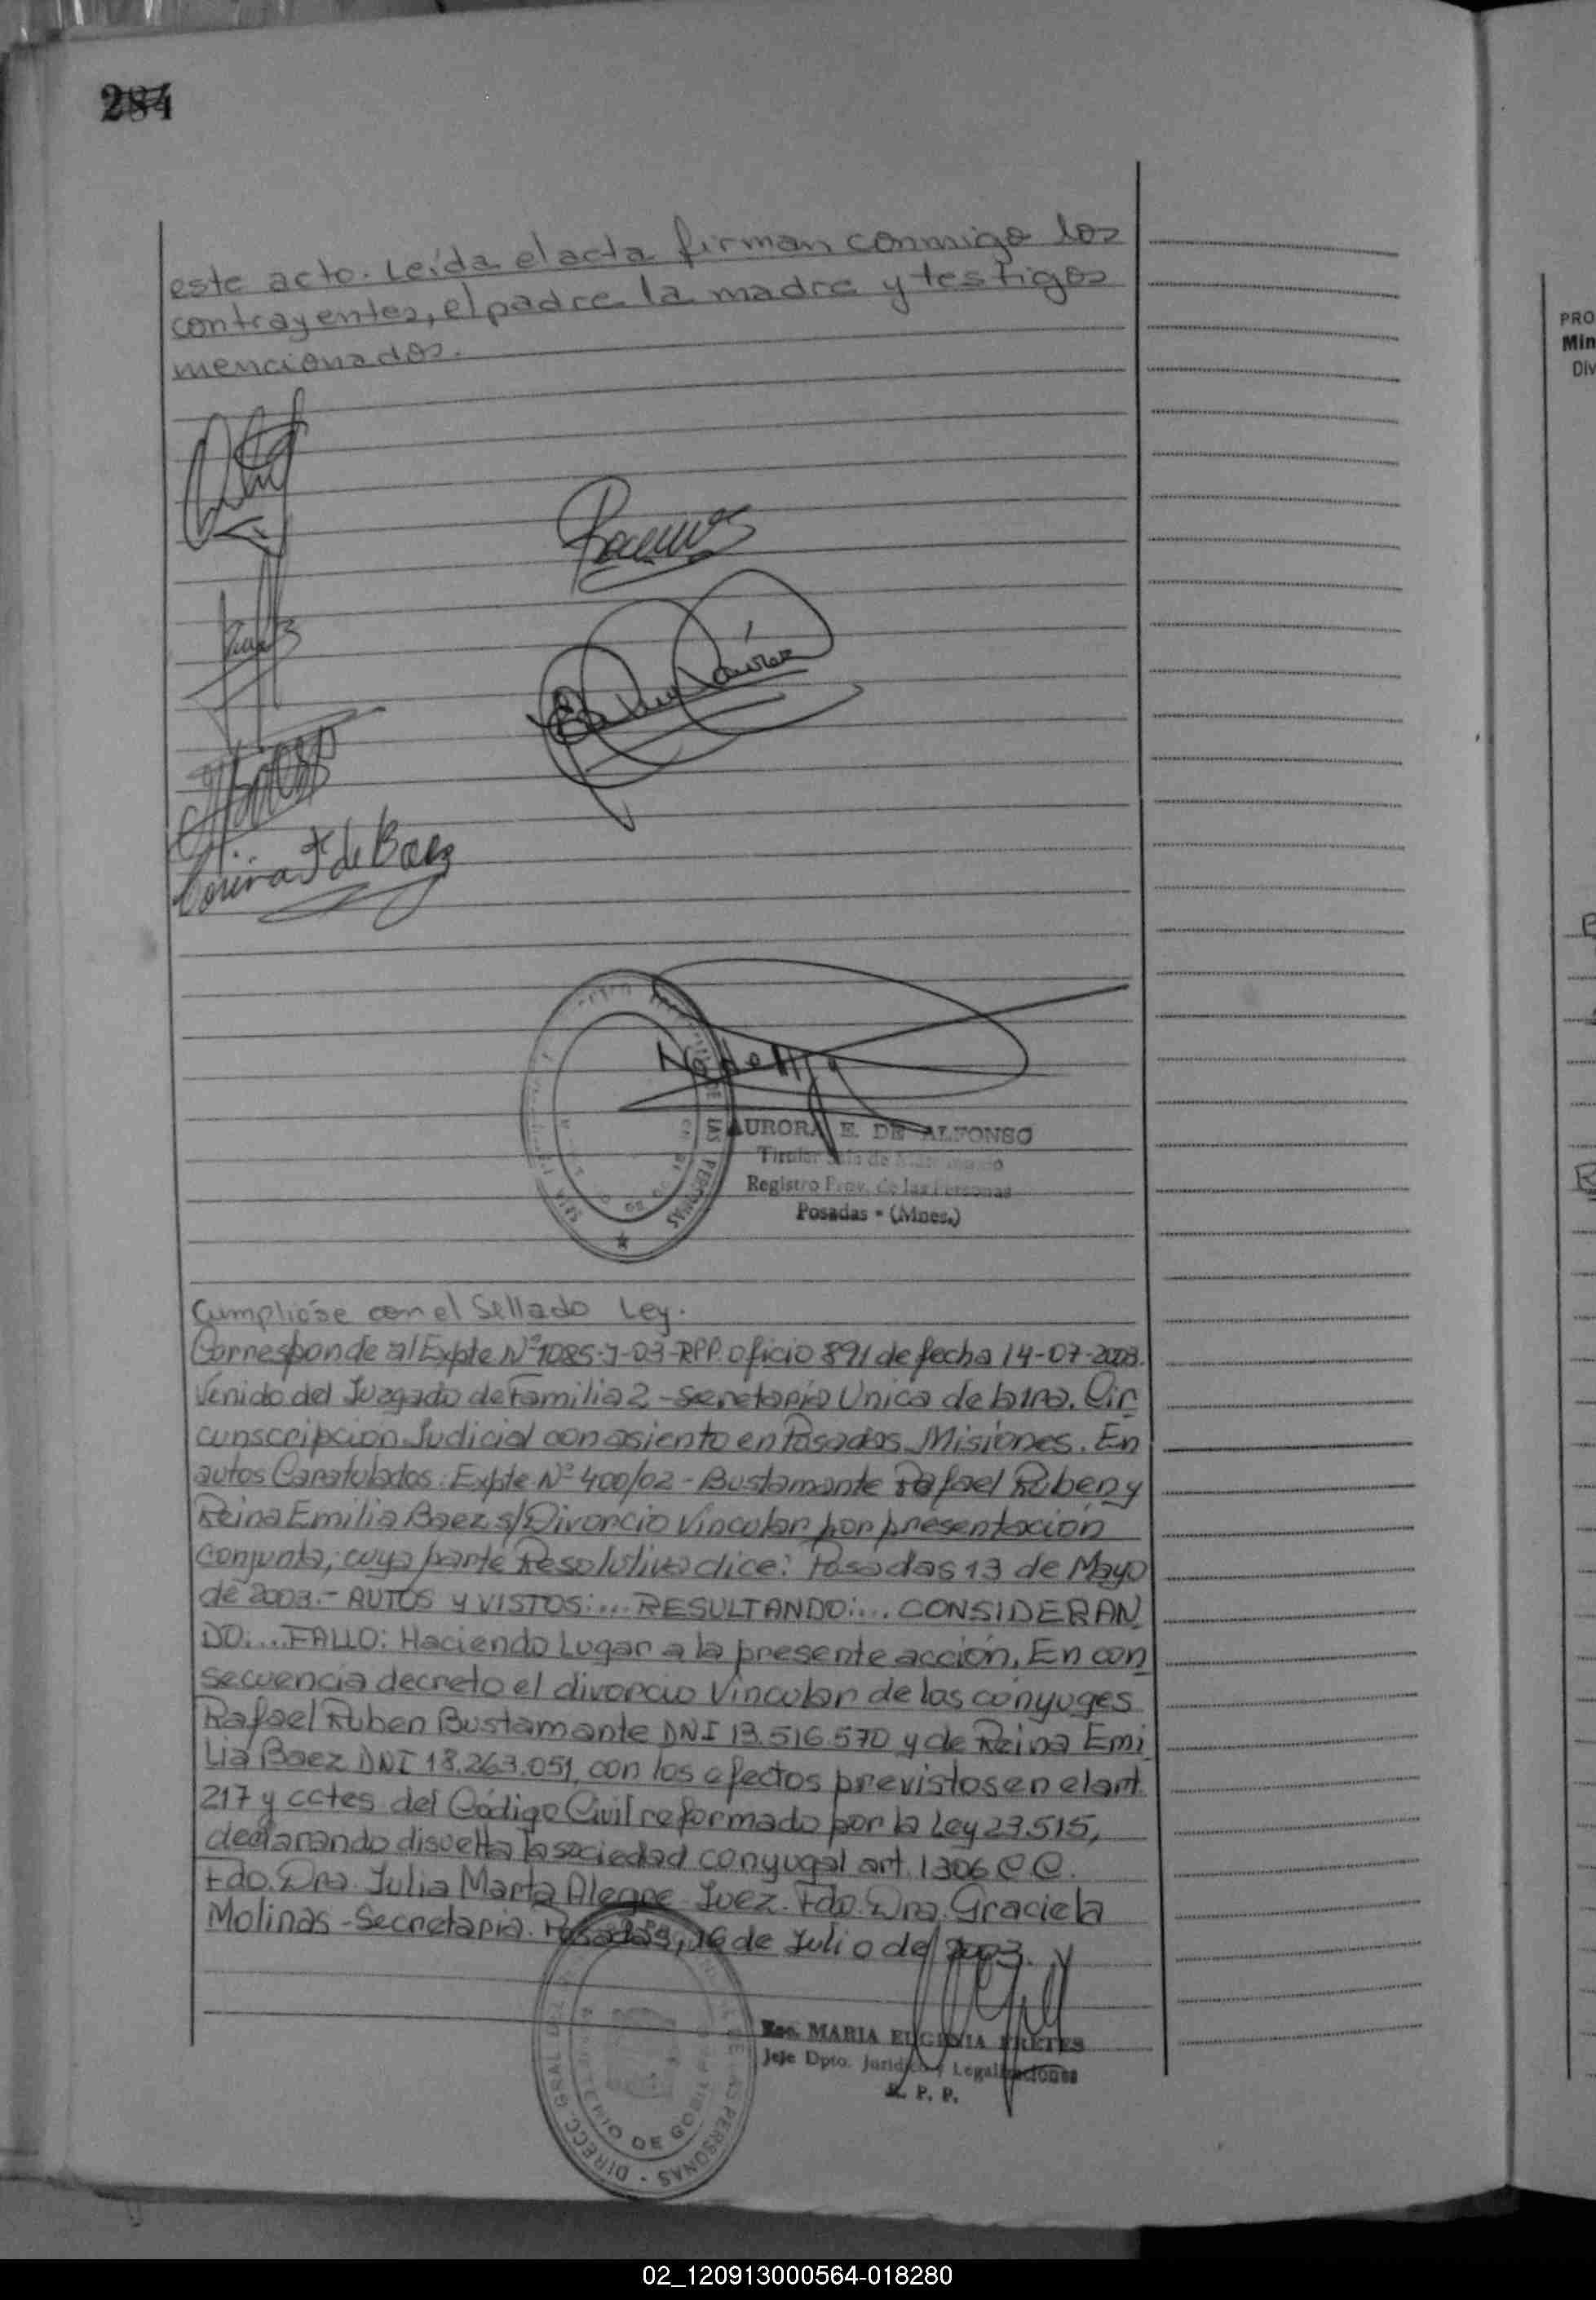 284
este acto. Leída el acta firman conmigo los
contrayentes, el padre la madre y testigos
mencionados.
Corina F de Baez
AURORA E. DE ALFONSO
Titular
Registro Prov. de las Personas
Posadas - (Mnes.)
DE LAS PERSONAS
Cumplióse con el Sellado Ley.
Corresponde al Expte Nº 1085-J-03-RPP. oficio 891 de fecha 14-07-2003.
Venido del Juzgado de Familia 2 - Secretaria Unica de la 1ra. Cir
cunscripcion Judicial con asiento en Posadas Misiones. En
autos Caratulados: Expte Nº 400/02 - Bustamante Rafael Ruben y
Reina Emilia Baez s/ Divorcio Vincular por presentacion
Conjunta, cuya parte Resolutiva dice: Posadas 13 de Mayo
de 2003.- AUTOS Y VISTOS:... RESULTANDO:... CONSIDERAN
DO:... FALLO: Haciendo Lugar a la presente acción, En con
secuencia decreto el divorcio Vincular de los cónyuges
Rafael Ruben Bustamante DNI 13.516.570 y de Reina Emi
lia Baez DNI 18.263.051, con los efectos previstos en el art.
217 y cctes del Código Civil reformado por la Ley 23.515,
declarando disuelta la sociedad conyugal art. 1306 C C.
Fdo. Dra. Julia Marta Alegre Juez. Fdo. Dra. Graciela
Molinas - Secretaria. Posadas, 16 de Julio del 2003.
Esc. MARIA EUGENIA FRETES
Jefe Dpto. Jurídico y Legalizaciones
R. P. P.
DIRECC. GRAL DE LAS PERSONAS
MINISTERIO DE GOBIERNO
PRO
Min
Div
02_120913000564-018280